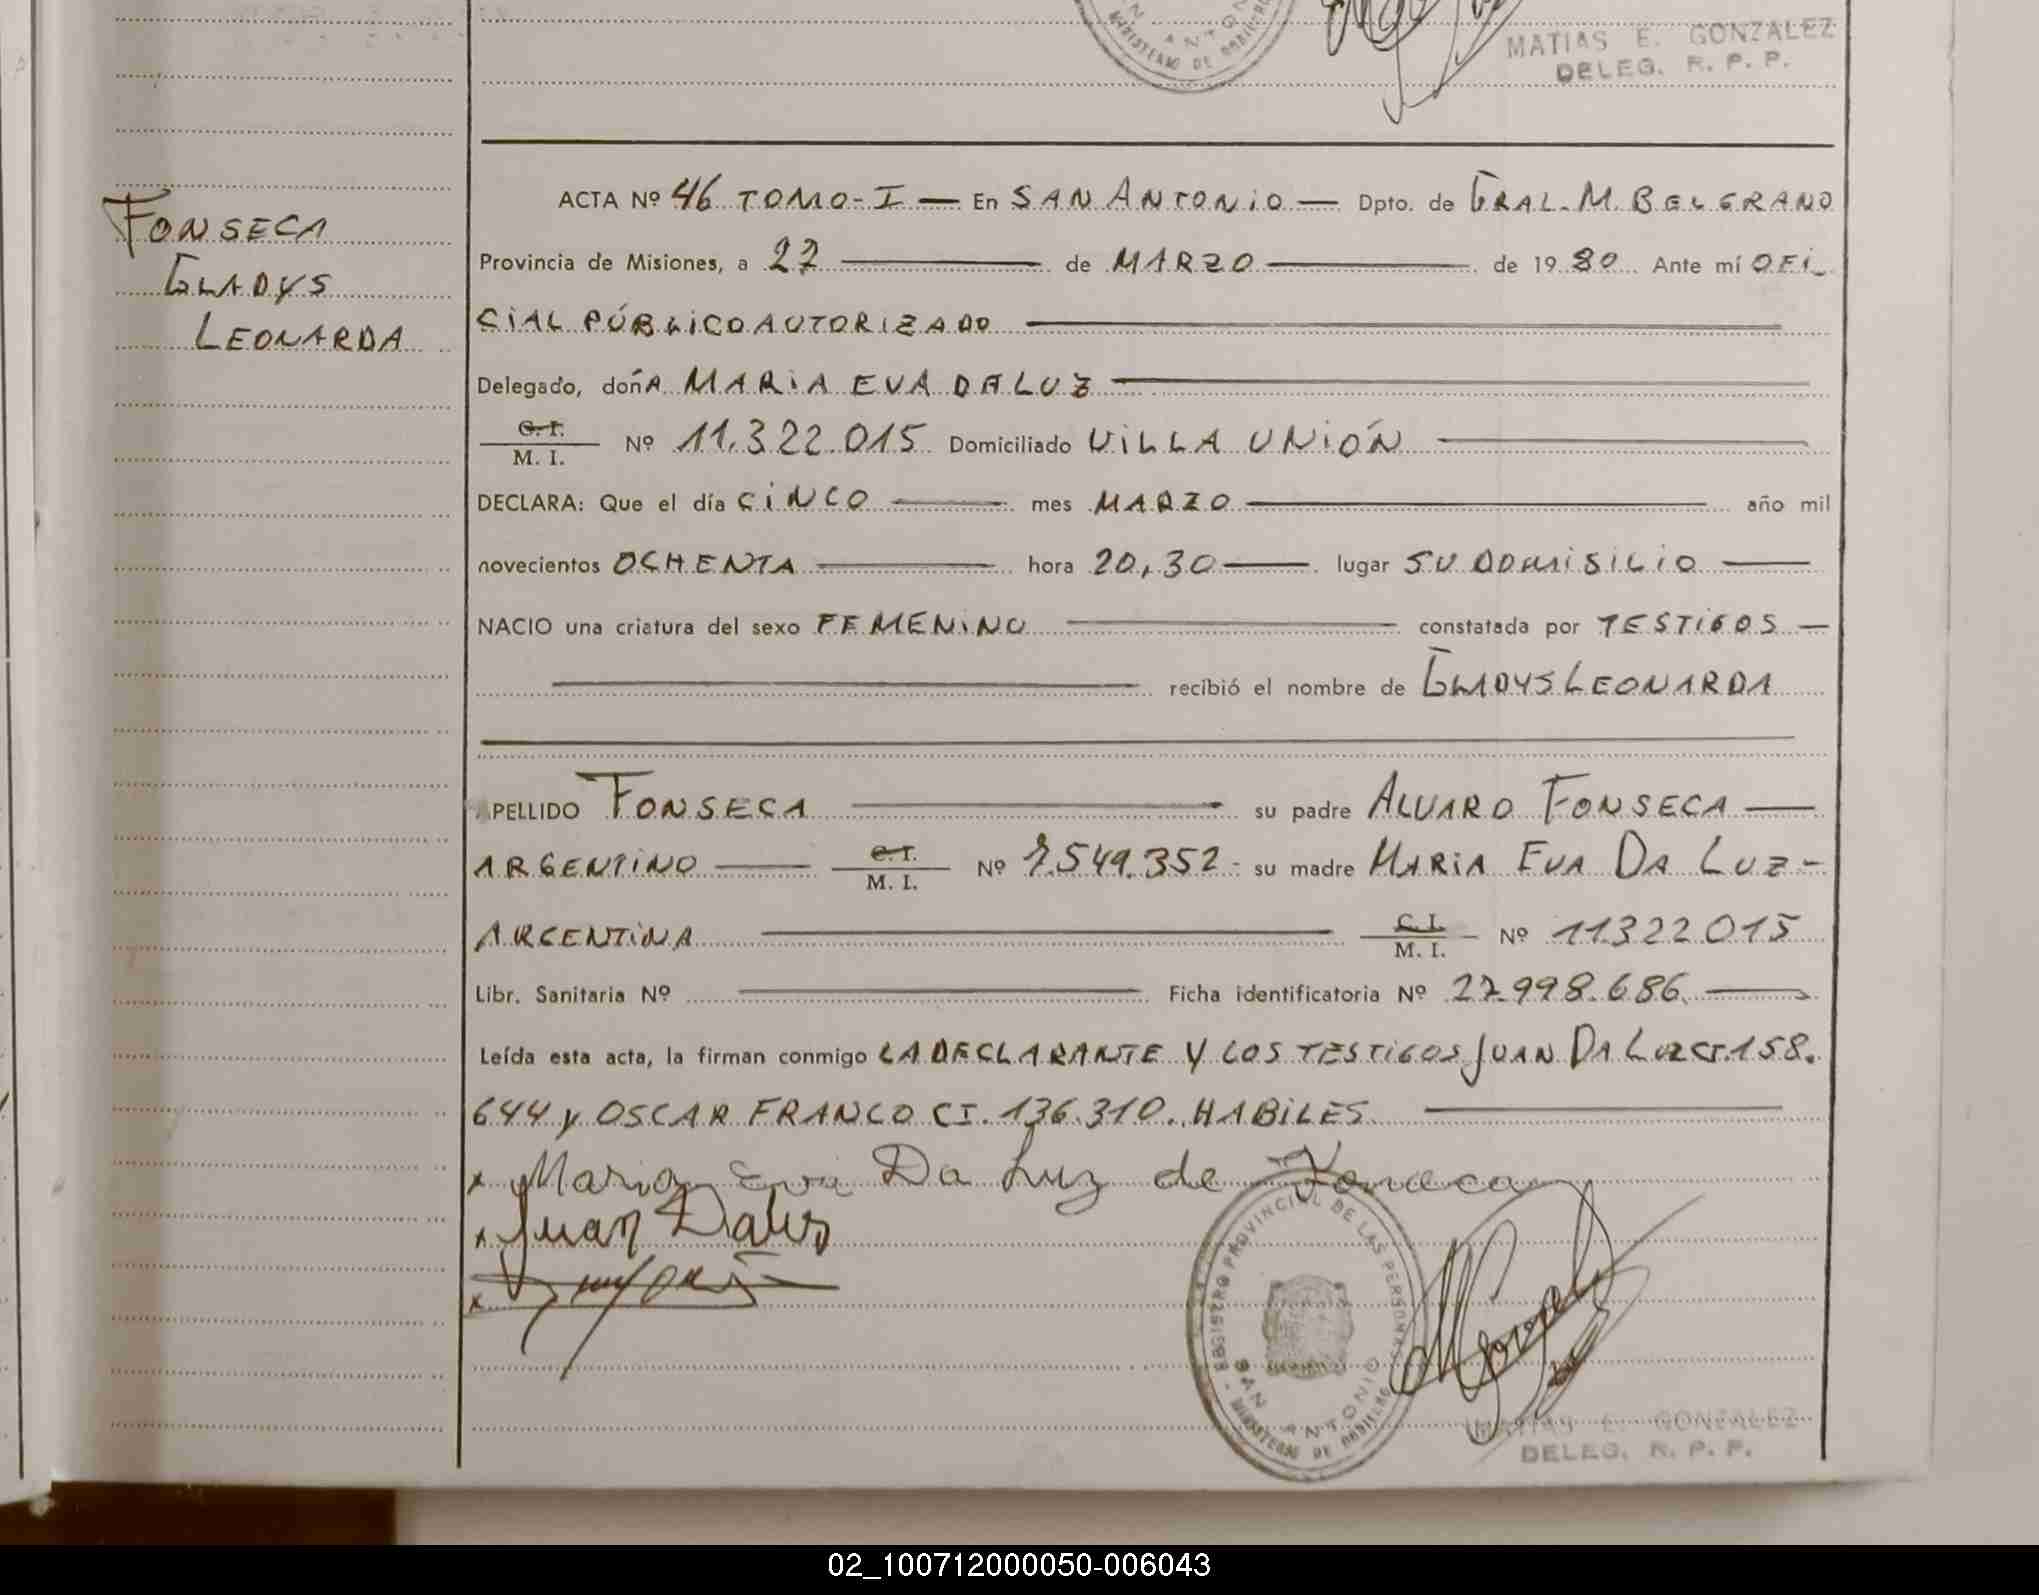 MATIAS E. GONZALEZ
DELEG. R. P. P.
FONSECA
GLADYS
LEONARDA
ACTA Nº 46 TOMO-I — En SAN ANTONIO — Dpto. de GRAL. M. BELGRANO
Provincia de Misiones, a 27 de MARZO de 1980 Ante mí OFI_
CIAL PÚBLICO AUTORIZADO
Delegado, doñA MARIA EVA DA LUZ
C. I.
M. I. Nº 11.322.015 Domiciliado VILLA UNIÓN
DECLARA: Que el día CINCO mes MARZO año mil
novecientos OCHENTA hora 20,30 lugar SU DOMISILIO
NACIO una criatura del sexo FEMENINO constatada por TESTIGOS —
recibió el nombre de GLADYS LEONARDA
APELLIDO FONSECA su padre ALVARO FONSECA —
ARGENTINO C. I. M. I. Nº 7.549.352- su madre MARIA EVA DA LUZ-
ARGENTINA C. I. M. I. Nº 11322015
Libr. Sanitaria Nº Ficha identificatoria Nº 27.998.686
Leída esta acta, la firman conmigo LA DECLARANTE Y LOS TESTIGOS JUAN DA LUZ CI.158.
644 y OSCAR FRANCO CI. 136.310. HABILES
x Maria Eva Da Luz de Fonseca
x Juan Daluz
x
REGISTRO PROVINCIAL DE LAS PERSONAS
SAN ANTONIO
MINISTERIO DE GOBIERNO
MATIAS E. GONZALEZ
DELEG. R. P. P.
02_100712000050-006043